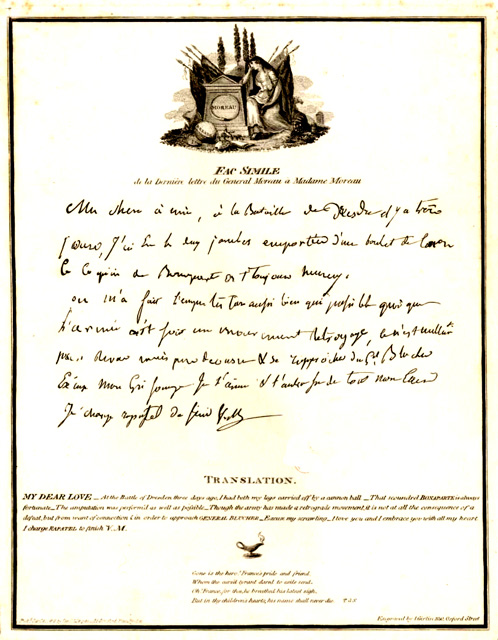 MOREAU
FAC SIMILE
de la Dernière lettre du General Moreau a Madame Moreau
Ma chere amie, à la Bataille de Dresde il y a trois
jours, J'ai eu les deux jambes emportées d'un boulet de Canon
Ce Coquin de Bonaparte est toujours heureux.
on m'a fait l'amputation aussi bien que possible quoique
l'armée ait fait un mouvement retrograde, ce n'est nullement
par revers mais par décousu & se rapprocher du Gl Blucher
Excuse mon Griffonage Je t'aime & t'embrasse de tout mon Coeur
Je charge rapatel de finir
TRANSLATION.
MY DEAR LOVE _ At the Battle of Dresden three days ago, I had both my legs carried off by a cannon ball _ That scoundrel BONAPARTE is always
fortunate _ The amputation was performed as well as possible _ Though the army has made a retrograde movement it is not at all the consequence of a
defeat, but from want of connection & in order to approach GENERAL BLUCHER _ Excuse my scrawling _ I love you and I embrace you with all my heart
I charge RAPATEL to finish V. M.
Gone is the hero! France's pride and friend,
Whom the
Oh! France for thee, he breathed his latest sigh,
But in thy children's hearts, his name shall never die.
Engraved by Girtin Oxford Street